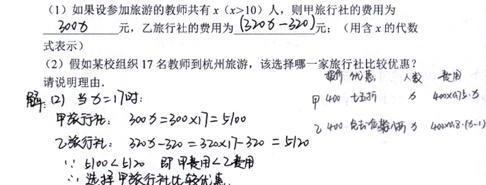 （1）如果设参加旅游的教师共有 x（x>10）人，则甲旅行社的费用为
300x 元，乙旅行社的费用为 (320x-320) 元；（用含 x 的代数
式表示）
（2）假如某校组织 17 名教师到杭州旅游，该选择哪一家旅行社比较优惠？
请说明理由．
解：(2) 当x=17时：
甲旅行社：300x=300×17=5100
乙旅行社：320x-320=320×17-320=5120
∵ 5100<5120 即甲费用<乙费用
∴ 选择甲旅行社比较优惠．
优惠 人数 费用
甲 400 七五折 x 400×0.75·x
乙 400 x 400×0.8·(x-1)